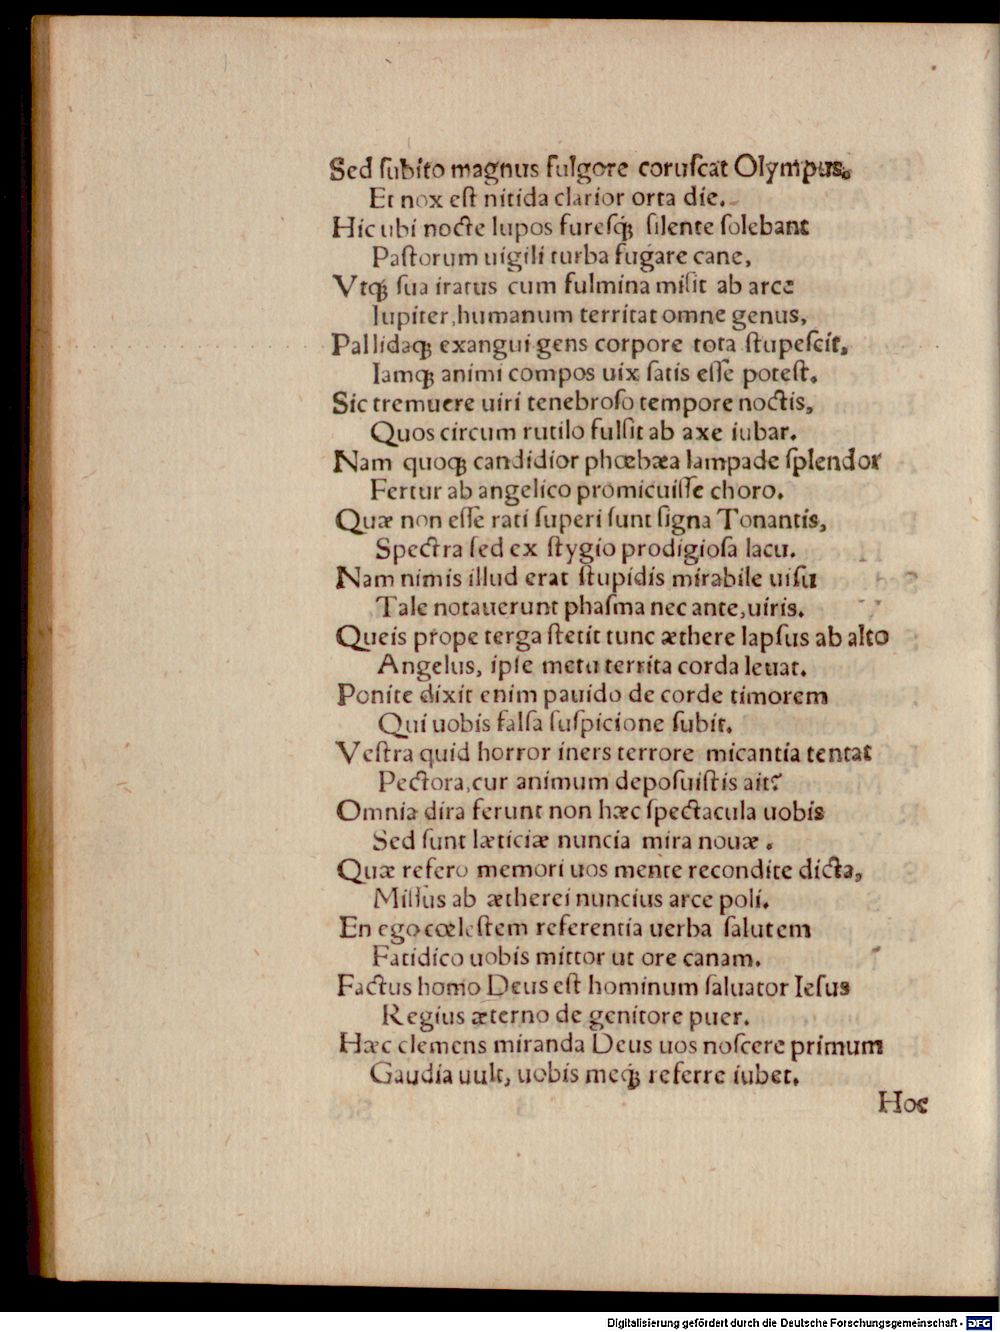 Sed ſubito magnus fulgore coruſcat Olympus.
Et nox eſt nitida clarior orta die.
Hic ubi nocte lupos furesqꝫ ſilente ſolebant
Paſtorum uigili turba fugare cane,
Vtqꝫ ſua iratus cum fulmina miſit ab arce
Iupiter, humanum territat omne genus,
Pallidaqꝫ exangui gens corpore tota ſtupeſcit,
Iamqꝫ animi compos uix ſatis eſſe poteſt.
Sic tremuere uiri tenebroſo tempore noctis,
Quos circum rutilo fulſit ab axe iubar.
Nam quoqꝫ candidior phœbæa lampade ſplendor
Fertur ab angelico promicuiſſe choro.
Quæ non eſſe rati ſuperi ſunt ſigna Tonantis,
Spectra ſed ex ſtygio prodigioſa lacu.
Nam nimis illud erat ſtupidis mirabile uiſu
Tale notauerunt phaſma nec ante, uiris.
Queis prope terga ſtetit tunc æthere lapſus ab alto
Angelus, ipſe metu territa corda leuat.
Ponite dixit enim pauido de corde timorem
Qui uobis falſa ſuſpicione ſubit.
Veſtra quid horror iners terrore micantia tentat
Pectora, cur animum depoſuiſtis ait?
Omnia dira ferunt non hæc ſpectacula uobis
Sed ſunt læticiæ nuncia mira nouæ.
Quæ refero memori uos mente recondite dicta,
Miſſus ab ætherei nuncius arce poli.
En ego cœleſtem referentia uerba ſalutem
Fatidico uobis mittor ut ore canam.
Factus homo Deus eſt hominum ſaluator Ieſus
Regius æterno de genitore puer.
Hæc clemens miranda Deus uos noſcere primum
Gaudia uult, uobis meqꝫ referre iubet.
Hoc
Digitalisierung gefördert durch die Deutsche Forschungsgemeinschaft - DFG